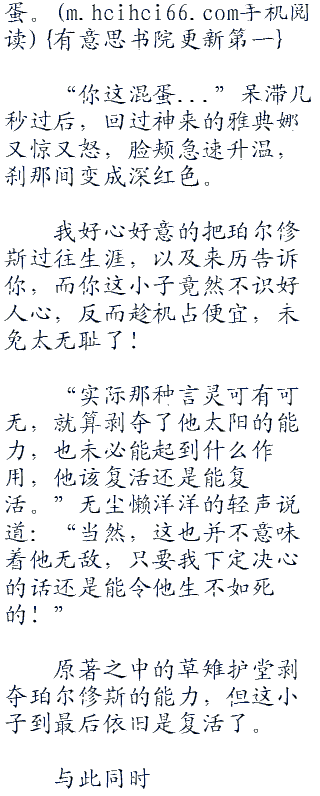 蛋。(m.hcihci66.com手机阅
读){有意思书院更新第一}
“你这混蛋...” 呆滞几
秒过后，回过神来的雅典娜
又惊又怒，脸颊急速升温，
刹那间变成深红色。
我好心好意的把珀尔修
斯过往生涯，以及来历告诉
你，而你这小子竟然不识好
人心，反而趁机占便宜，未
免太无耻了！
“实际那种言灵可有可
无，就算剥夺了他太阳的能
力，也未必能起到什么作
用，他该复活还是能复
活。”无尘懒洋洋的轻声说
道：“当然，这也并不意味
着他无敌，只要我下定决心
的话还是能令他生不如死
的！”
原著之中的草雉护堂剥
夺珀尔修斯的能力，但这小
子到最后依旧是复活了。
与此同时